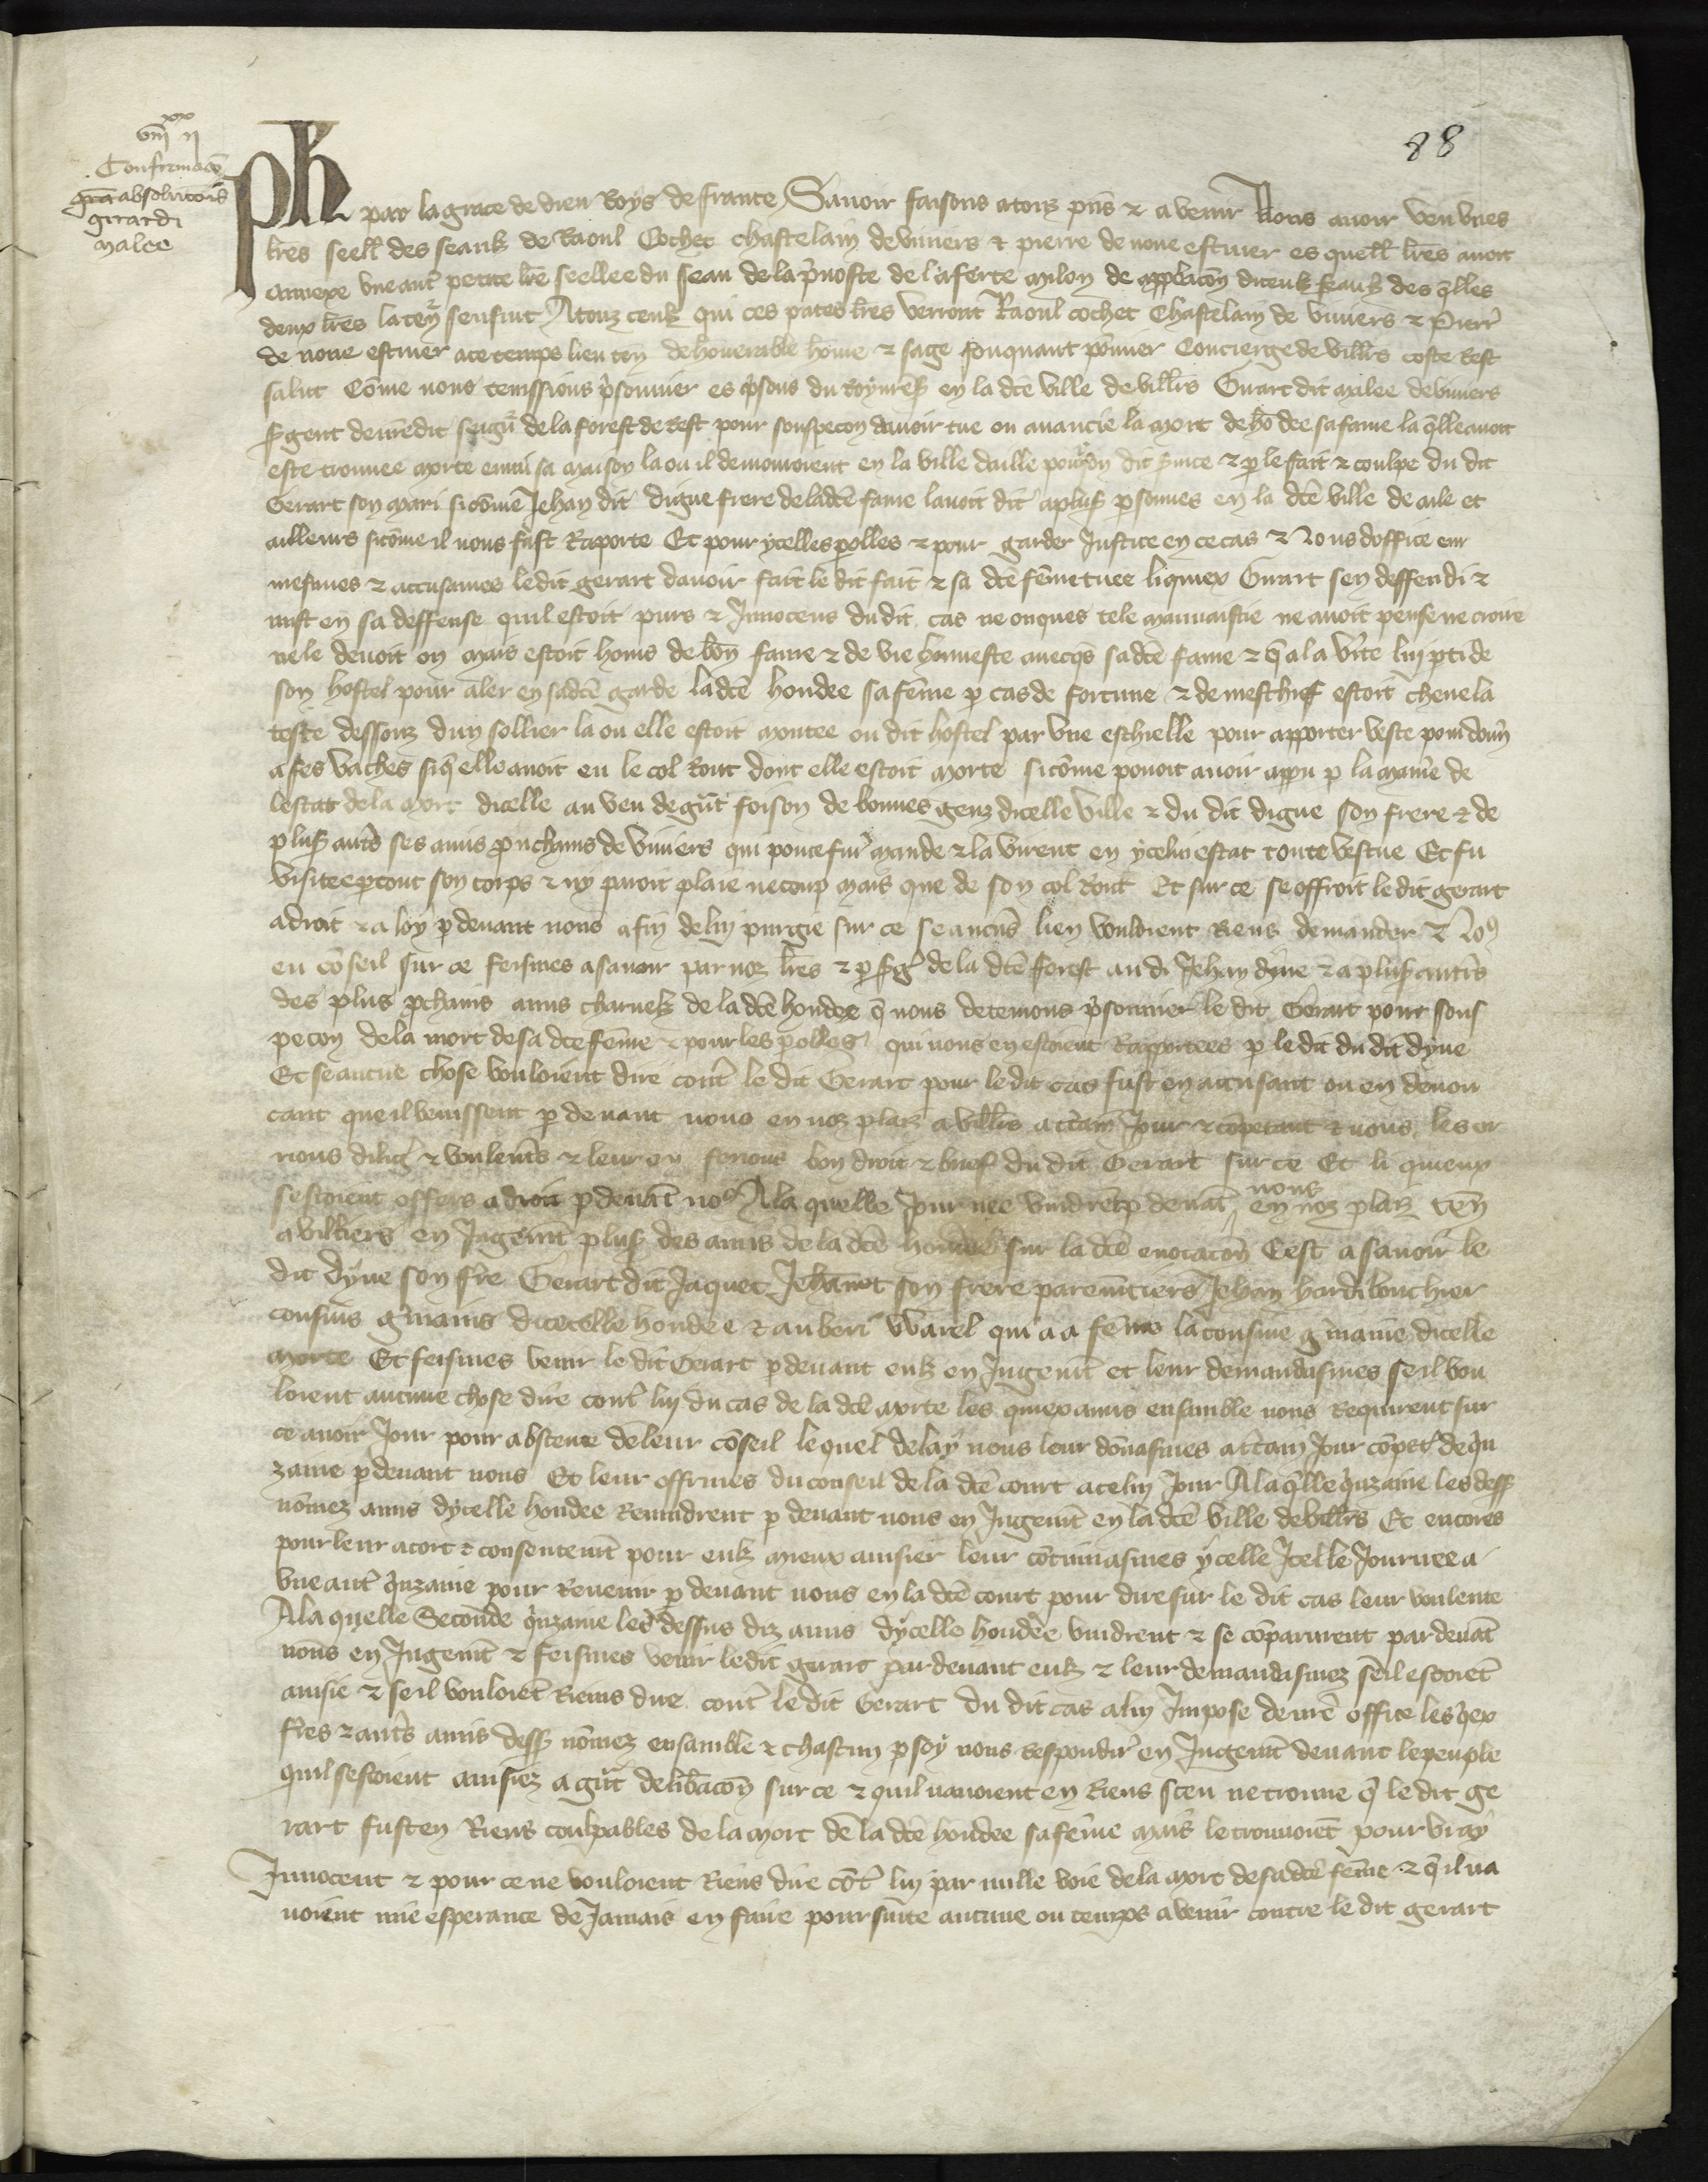 88
xx
viii ii
Confirmacō
gr̄a absolucōis
girardi
malee
Ph par la grace de dieu Roys de france Sauoir faisons a touz p̄ns & a venir Nous auoir veu vnes
lr̄es seell des seaulz de Raoul Cochet chastelain de viuiers & pierre de noue estuier es quell lr̄es auoit
annexe vne autr̄ petite lr̄e seellee du seau de la p̄uoste de la ferte milon de applacōn diceulz seaulz des q̄lles
deux lr̄es la ten̄ sensuit A touz ceulz qui ces p̄ntes lr̄es verront Raoul cochet Chastelain de viuiers & Pierr̄
de noue estuier a ce temps lieu ten̄ de honerable hōme & sage Concierge de villr̄s coste Rest
salut Cōme nous tenissions p̄sonnier es p̄sons du Roy nr̄es̄ en la dc̄e ville de villr̄s Girart dit malee de viuiers
s̄gent de nr̄edit seign̄ de la forest de rest pour souspecon dauoir tue ou auancie la mort de hōdee sa fame la q̄lle auoit
este trouuee morte enmi sa maison la ou il demouroient en la ville daille dit & p le fait & coulpe du dit
Gerart son mari si cōme Jehan dit digue frere de ladc̄e fame lauoit dit a plus̄ p̄sonnes en la dc̄e ville de aile et
ailleurs sicōme il nous fust Raporte Et pour ycelles p̄olles & pour garder Justice en ce cas & Nous doffice em
mesmes & accusames ledit gerart dauoir fait le dit fait & sa dc̄e fēme tuee liquiex Girart sen deffendi &
mist en sa deffense quil estoit purs & Innocens du dit cas ne onques tele mauuaistie ne auoit pense ne croire
ne le deuoit on mais estoit homs de bōn fame & de vie honneste auecq̄s sadc̄e fame & q̄ a la vīte luy p̄ti de
son hostel pour aler en sadc̄e garde ladc̄e hondee sa fēme p cas de fortune & de meschief estoit cheue la
teste dessouz dun sollier la ou elle estoit montee ou dit hostel par vne eschielle pour apporter veste pour dōn̄
a ses vaches si q̄ elle auoit eu le col Rout dont elle estoit morte sicōme pouoit auoir appū p la manir̄e de
lestat de la mort dicelle au veu de gn̄t foison de bonnes genz dicelle ville & du dit digue son frere & de
plus̄ autr̄s ses amis p̄uchains de viuiers qui pour ce fur̄ mande & la virent en ycelui estat toute vestue Et fu
visitee p̄tout son corps & ny p̄uoit plaie ne coup mais que de son col Rout Et sur ce se offroit ledit gerart
a droit & a loy p deuant nous a fin de luy purgie sur ce se aucūs lien vouloient Riens demander & No9
eu cōseil sur ce feismes asauoir par noz lr̄es & p s̄ḡ de la dc̄e forest au di Jehan dyne & a plus̄ autr̄s
des plus p̄chains amis charnelz de la dc̄e hondee q̄ nous detenions p̄sonnier le dit Gerart pour sous
pecon de la mort de sa dc̄e fēme & pour les p̄olles qui nous en estoient Rapportees p le dit du dit dyne
Et se aucūe chose vouloient dire contr̄ le dit Gerart pour le dit cas fust en accusant ou en denon
cant que il venissent p deuant nous en noz plaiz a villr̄s a c̄tain Jour & cōpetant & nous les or
rions diliḡ & voulentr̄s & leur en ferions bon droit & brief du dit Gerart sur ce Et li quieux
sestoient offers a droit p deuāt no9 A la quelle Journee vindrēt p deuāt nous en noz plaiz ten̄
a villiers en Jugemīt plus̄ des amis de la dc̄e hondee sur la dc̄e euocacōn Cest asauoir le
dit dyne son fr̄e Gerart dit Jaquet Jehānot son frere Jehan hardi bouchier
cousins ḡmains dicecelle hondee & auberi Warel qui a a fēme la cousine ḡmaine dicelle
morte Et feismes venir le dit Gerart p deuant eulz en Jugemīt et leur demandasmes se il vou
loient aucune chose dire contr̄ luy du cas de la dc̄e morte les quiex amis ensamble nous Requirent sur
ce auoir Jour pour abscence de leur cōseil lequel delay nous leur dōnasmes a c̄tain Jour cōpet̄ de q̄n
zaine p deuant nous Et leur offrimes du conseil de la dc̄e court a celuy Jour A la q̄lle q̄nzaine les dess̄
nōmez amis dycelle hondee Reuindrent p deuant nous en Jugemīt en la dc̄e ville de villr̄s Et encores
pour leur acort & consentemīt pour eulz mieux auisier leur cōtinuasmes ycelle Jcelle Journee a
vne autr̄ q̄nzaine pour Reuenir p deuant nous en la dc̄e court pour dire sur le dit cas leur voulente
A la quelle Seconde q̄nzaine les dessus diz amis dycelle hondee vindrent & se cōparurent par deuāt
nous en Jugemīt & feismes venir ledit gerart par deuant eulz & leur demandasmez se il estoiēt
auisie & se il vouloiēt Riens dire contr̄ le dit Gerart du dit cas a luy Jmpose de nr̄e office les q̄ex
fr̄es & autr̄s amis dess̄ nōmez ensamble & chascun p soy nous Respondir̄ en Jugemīt deuant le peuple
quil sestoient auisiez a gn̄t deliƀacōn sur ce & quil nauoient en Riens sceu ne trouue q̄ le dit ge
rart fust en Riens coulpables de la mort de la dc̄e hondee sa fēme mais le trouuoiēt pour vray
Innocent & pour ce ne vouloient Riens dire cōtr̄ luy par nulle voie de la mort de sadc̄e fēme & q̄ il na
uoient mie esperance de Jamais en faire poursuite aucune ou temps auenir contre le dit gerart